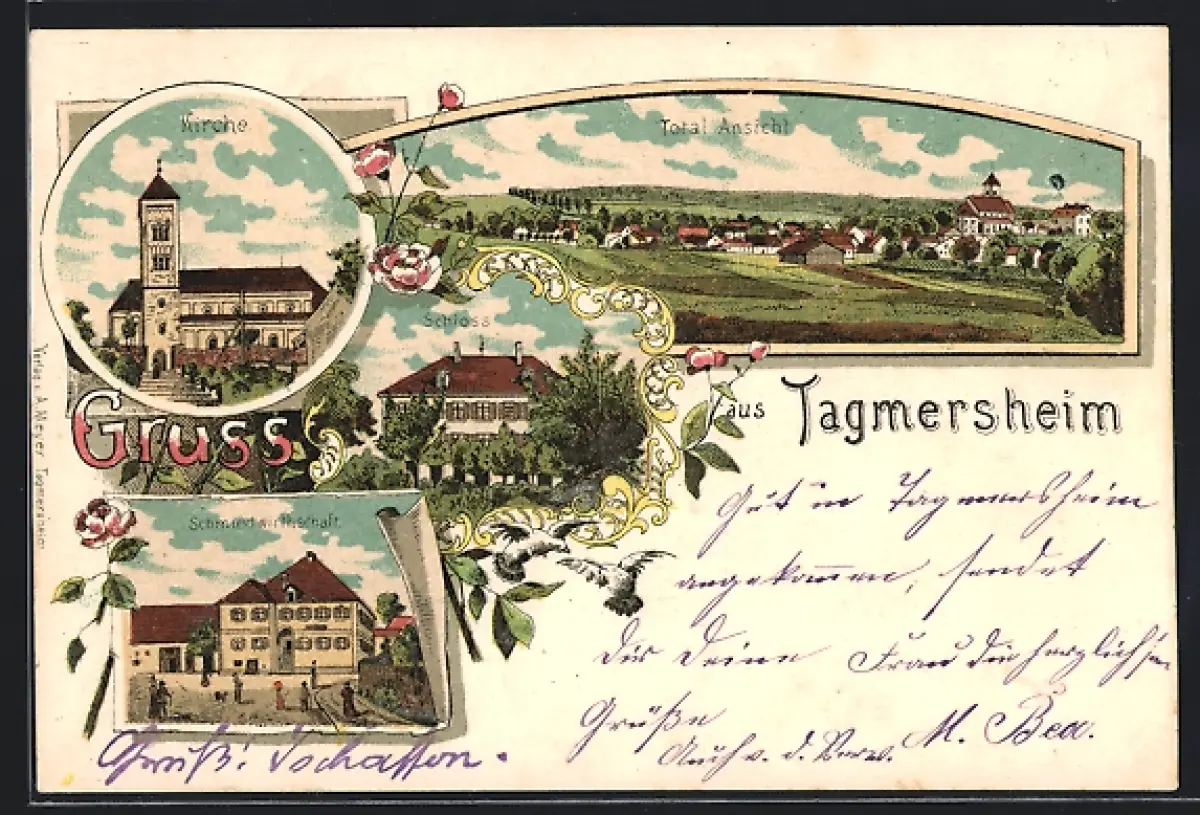 Kirche
Total Ansicht
Schloss
Gruss
aus Tagmersheim
Schmiedwirthschaft
Verlag v. A. Meyer Tagmersheim
Gut in Tagmersheim
angekommen, sendet
Dir Deine Frau die herzlichsten
Grüße
M. Bea.
Auch v. d. Verw.
Gruß: